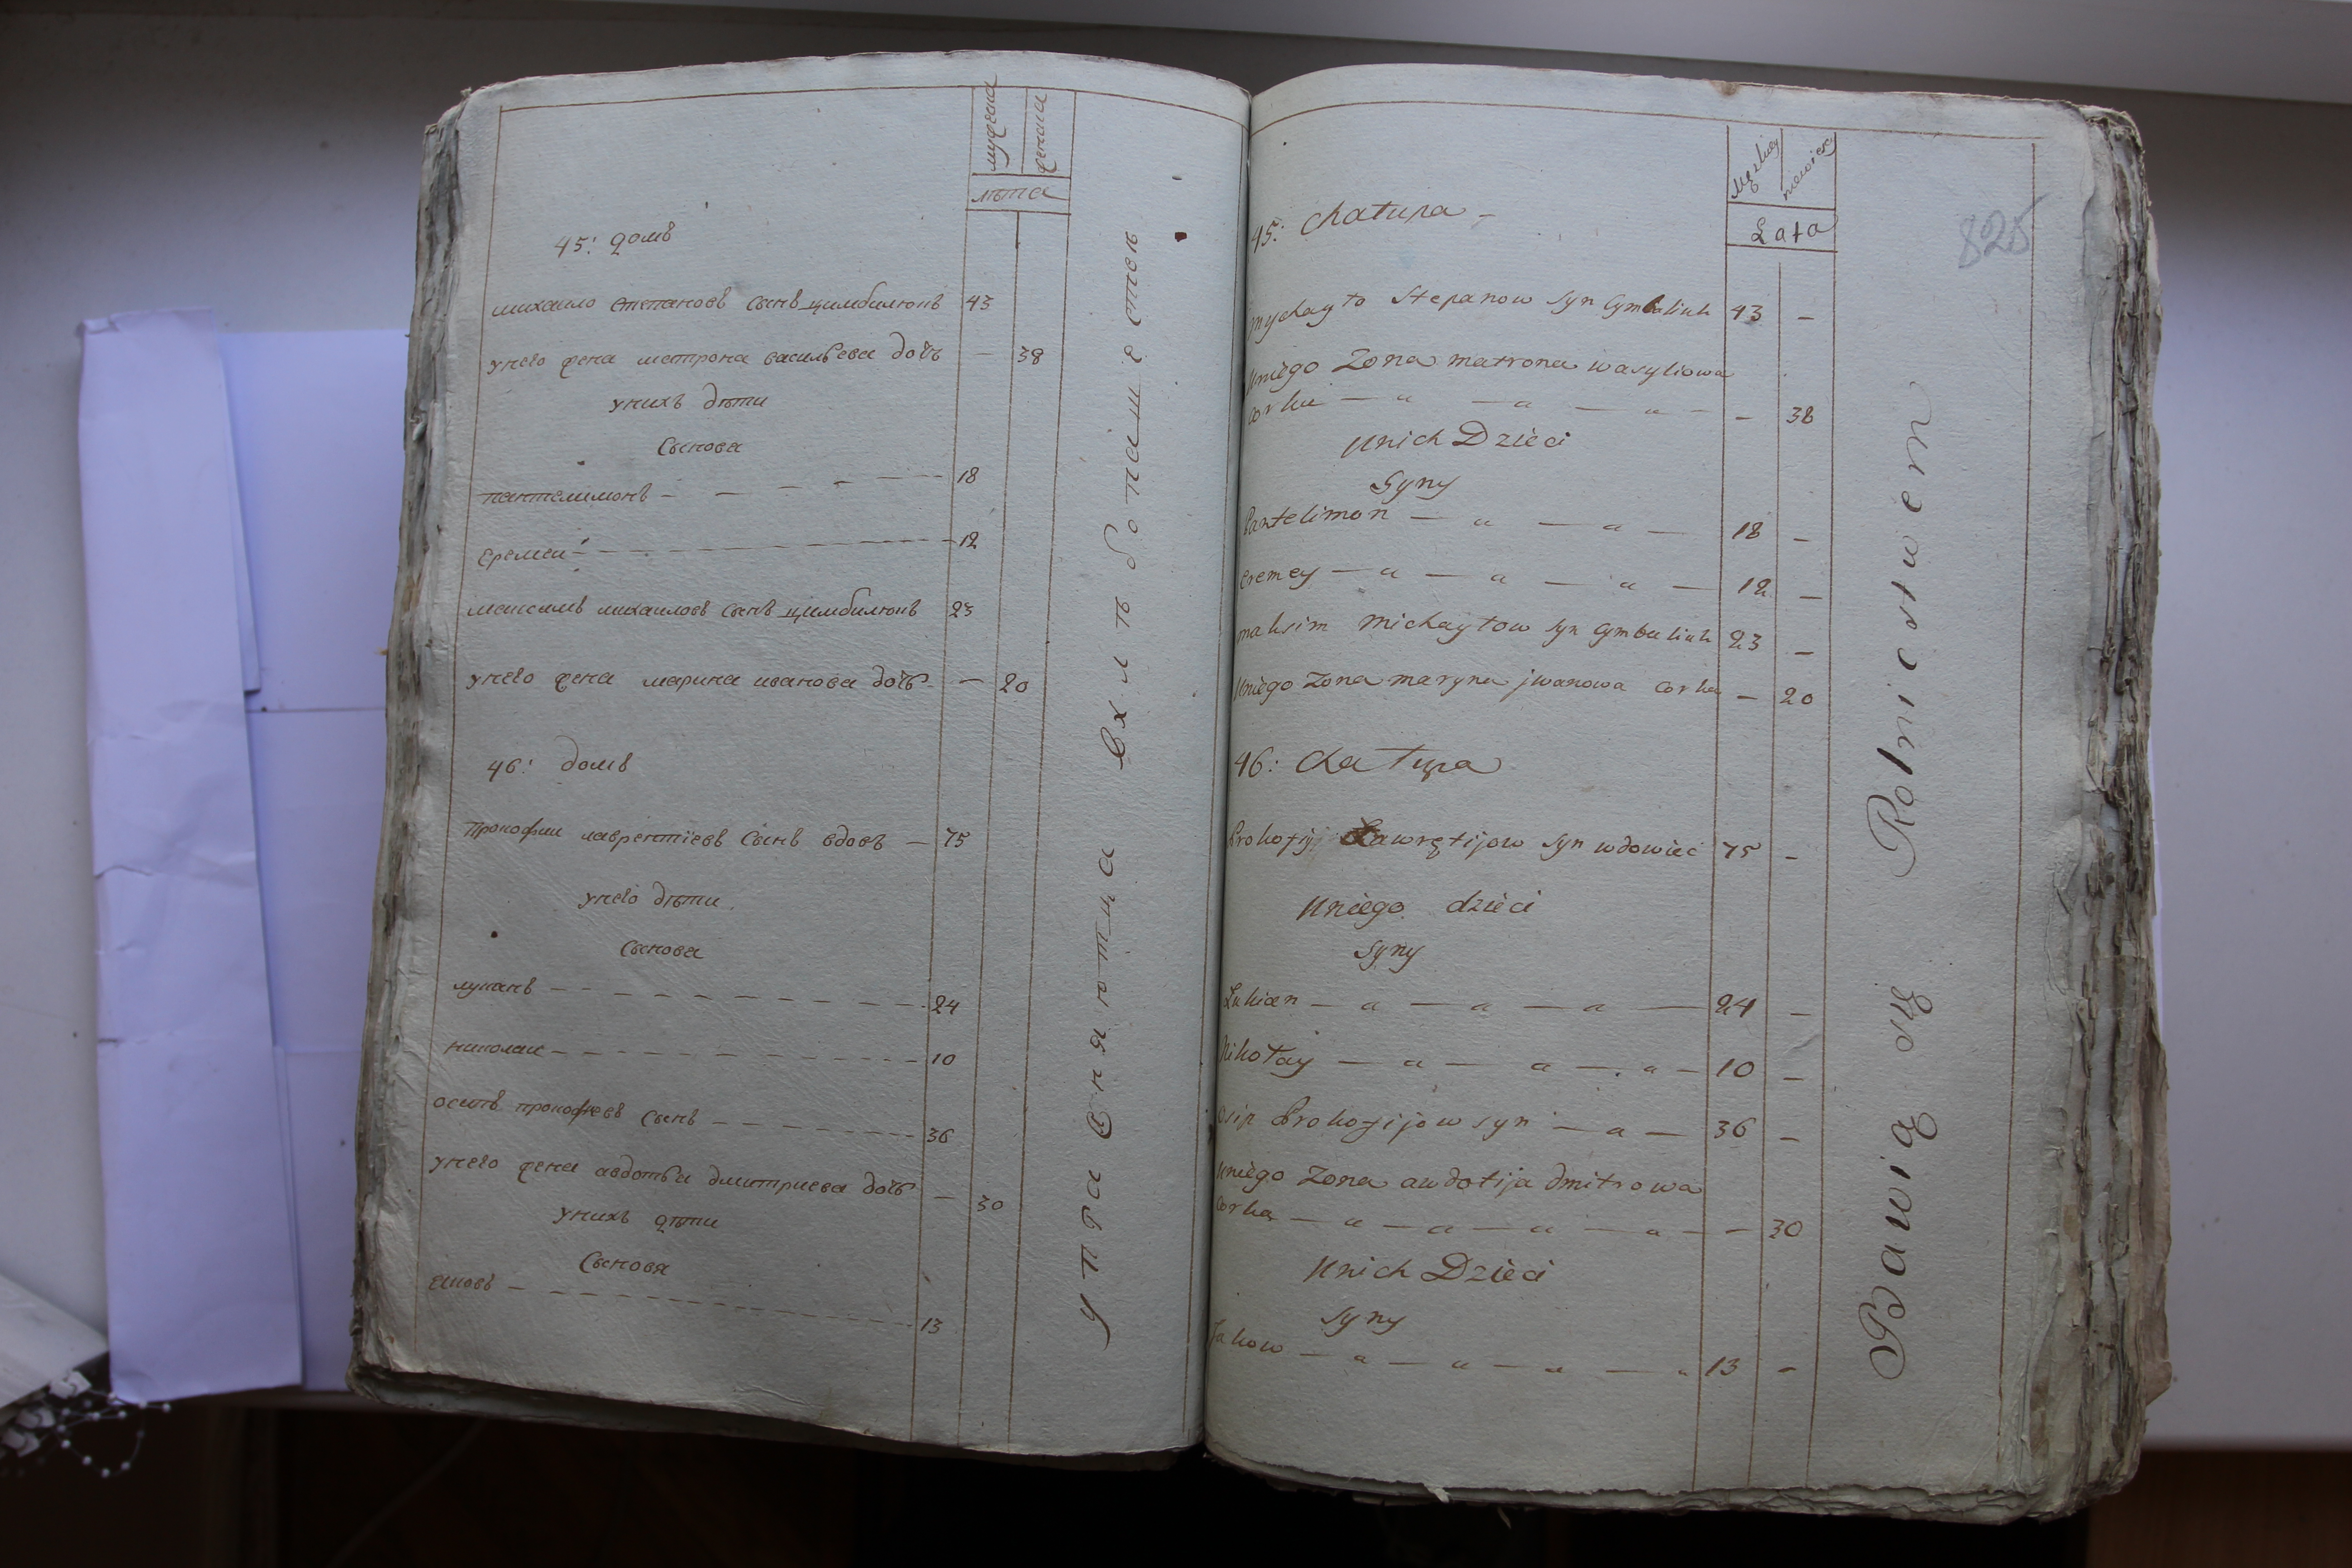 мужеска
женска
лѣта
45: домъ
михаило степановъ сынъ цимбилюкъ 43
унего жена матрона васильева дочь — 38
унихъ дѣти
Сынова
пантелимонъ — 18
еремеи — 12
максимъ михаиловъ сынъ цимбилюкъ 23
унего жена марина иванова дочь — 20
46: домъ
прокофии лаврентиевъ сынъ вдовъ — 75
унего дѣти
сынова
лукянъ — 24
николаи — 10
осипъ прокофиевъ сынъ — 36
унего жена авдотья дмитриева дочь — 30
унихъ дѣти
Сыновя
яковъ — 13
упражняютца вхлѣбопашестве
Męzkiey
niewiesc
Lata
825
45: chatupa —
mychayło Stepanow Syn Cymbaliuk 43 —
Uniego Zona matrona wasyliowa
corka — 38
Unich Dzieci
Syny
Pantelimon — 18 —
eremey — 12 —
maksim michayłow syn Cymbaliuk 23 —
Uniego Zona maryna jwanowa corka — 20
46: chatupa
Prokofij Ławrętijow syn wdowieć 75 —
Uniego dzieci
syny
Łukian — 24 —
Nikołay — 10 —
Osip Prokofijow syn — 36 —
Uniego Zona audotija dmitrowa
corka — 30
Unich Dzieci
syny
Jakow — 13 —
Bawią się Rolnicstwem